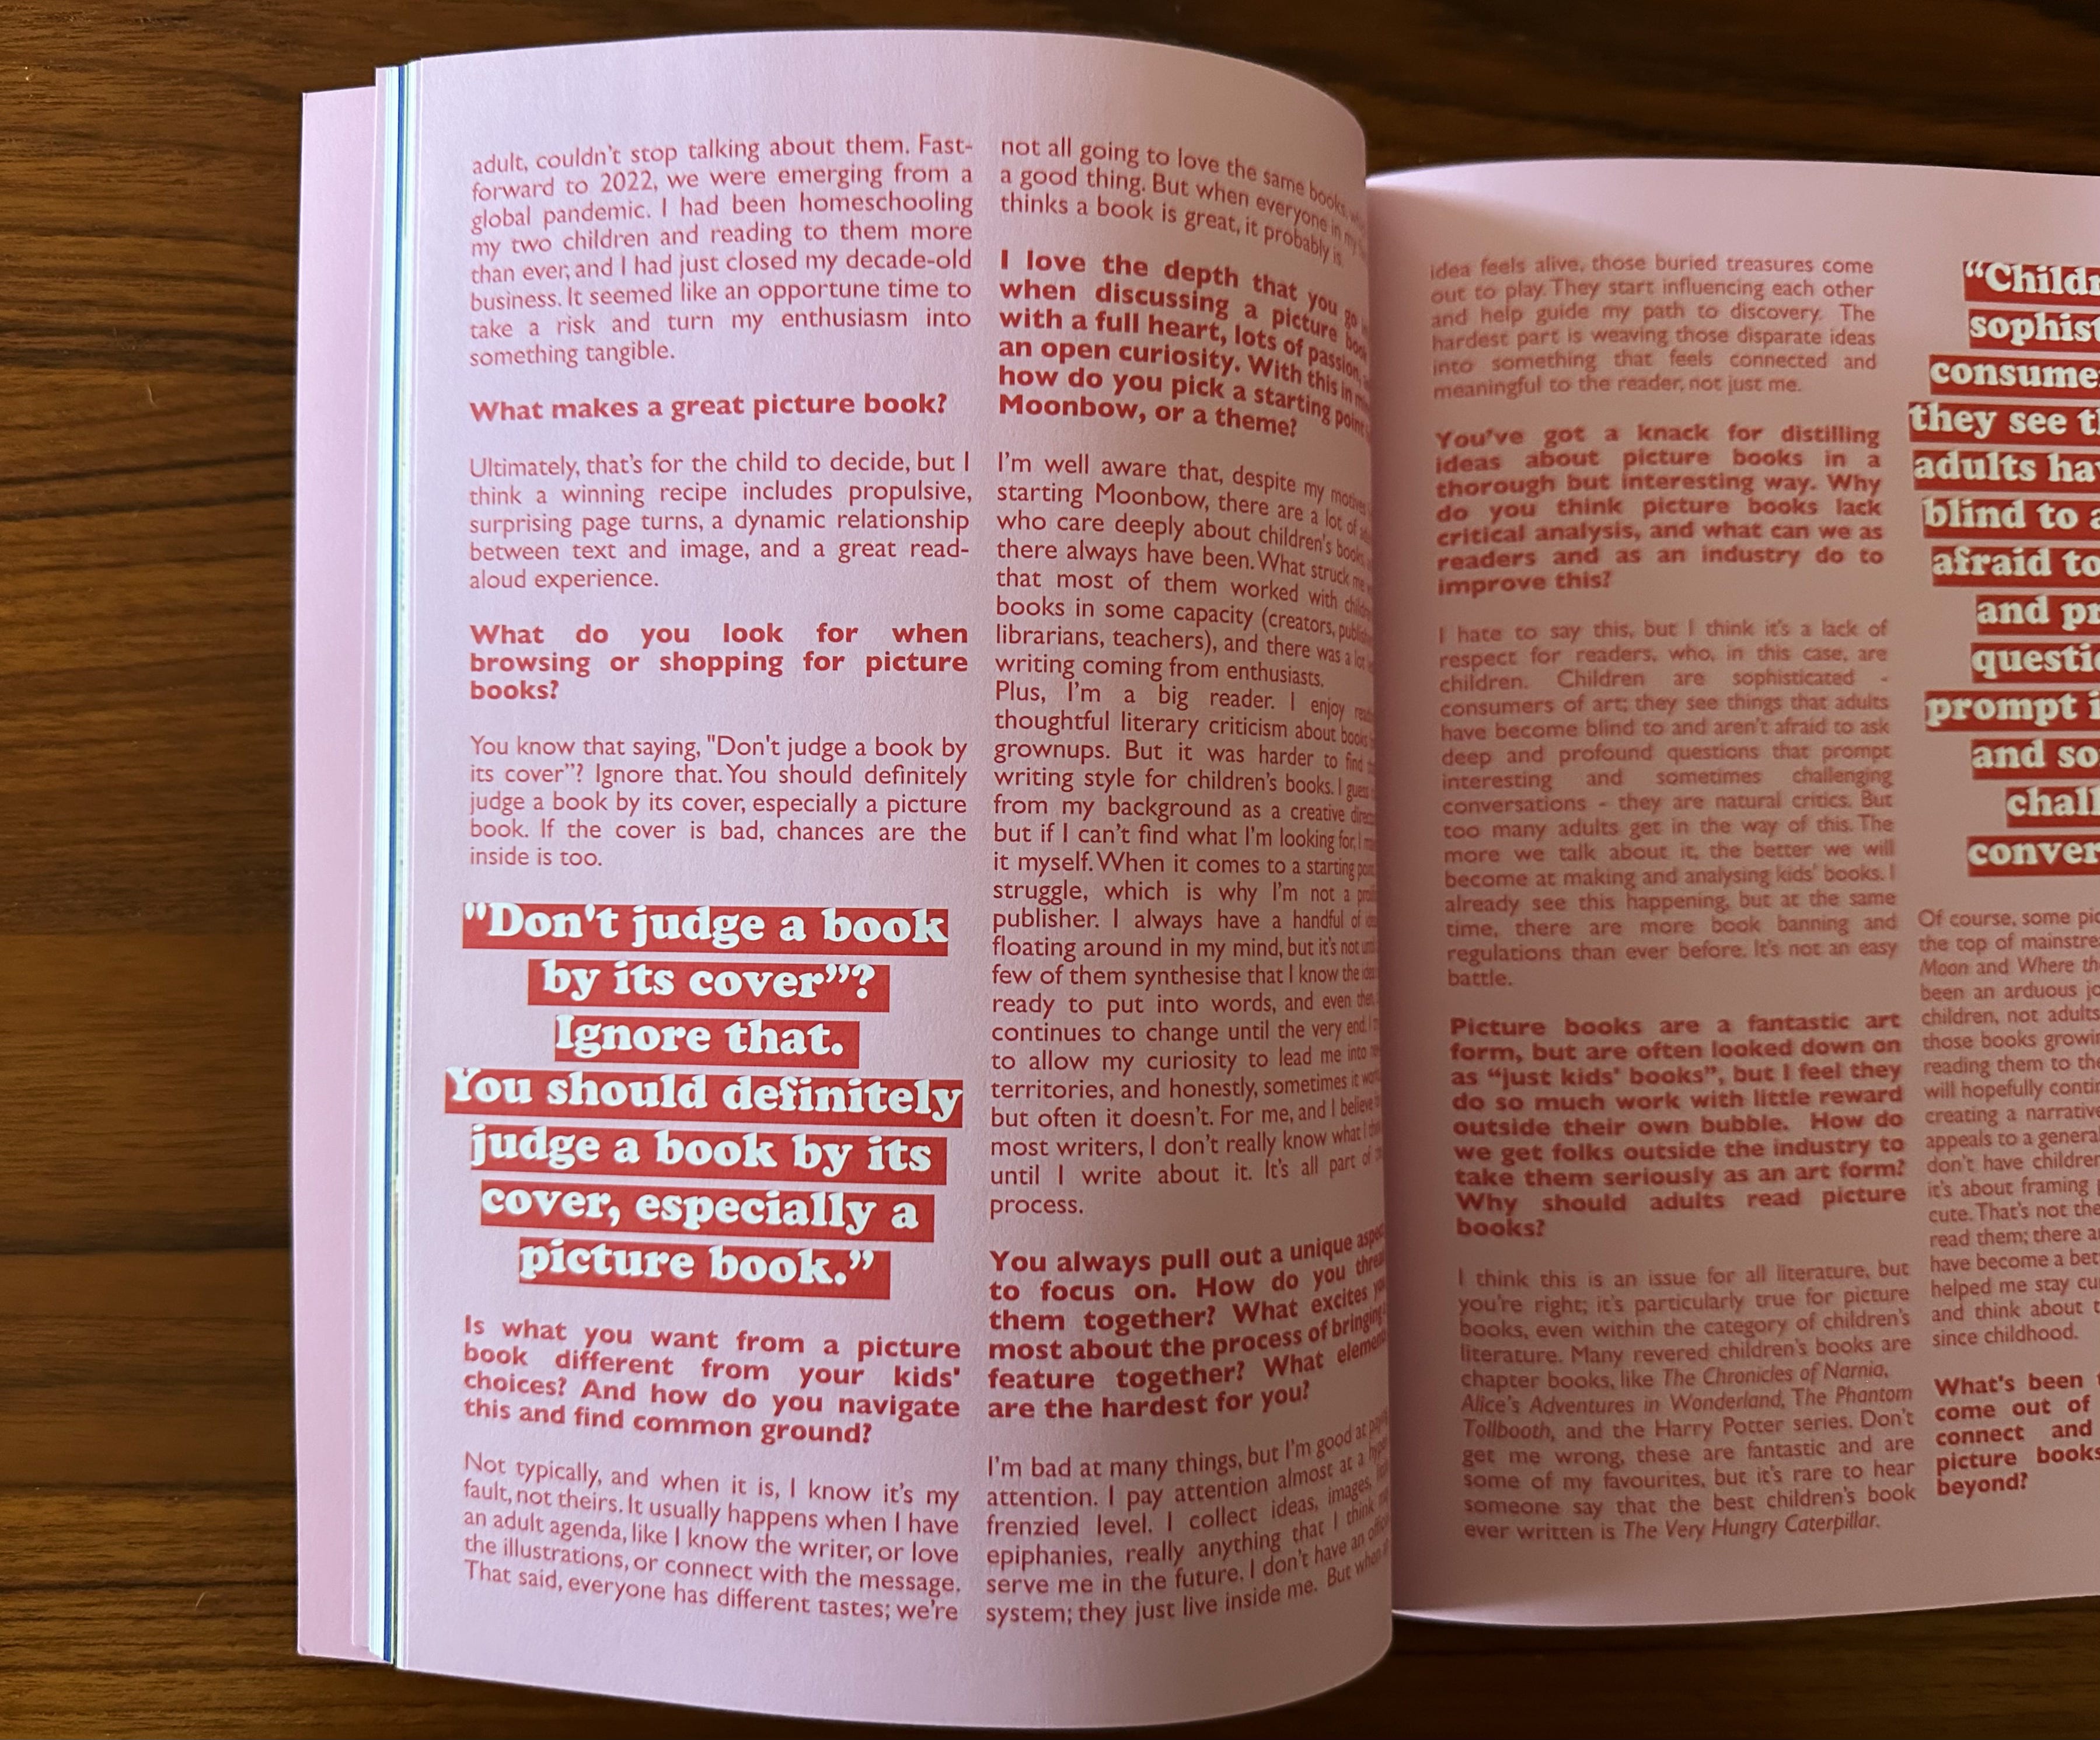 adult, couldn't stop talking about them. Fast-
forward to 2022, we were emerging from a
global pandemic. I had been homeschooling
my two children and reading to them more
than ever, and I had just closed my decade-old
business. It seemed like an opportune time to
take a risk and turn my enthusiasm into
something tangible.
What makes a great picture book?
Ultimately, that's for the child to decide, but I
think a winning recipe includes propulsive,
surprising page turns, a dynamic relationship
between text and image, and a great read-
aloud experience.
What do you look for when
browsing or shopping for picture
books?
You know that saying, "Don't judge a book by
its cover”? Ignore that. You should definitely
judge a book by its cover, especially a picture
book. If the cover is bad, chances are the
inside is too.
"Don't judge a book
by its cover”?
Ignore that.
You should definitely
judge a book by its
cover, especially a
picture book.”
Is what you want from a picture
book different from your kids'
choices? And how do you navigate
this and find common ground?
Not typically, and when it is, I know it's my
fault, not theirs. It usually happens when I have
an adult agenda, like I know the writer, or love
the illustrations, or connect with the message.
That said, everyone has different tastes; we're
not all going to love the same books,
a good thing. But when everyone in my
thinks a book is great, it probably is.
I love the depth that you go
when discussing a picture book
with a full heart, lots of passion,
an open curiosity. With this in
how do you pick a starting point
Moonbow, or a theme?
I'm well aware that, despite my motives
starting Moonbow, there are a lot of
who care deeply about children's books
there always have been. What struck me
that most of them worked with
books in some capacity (creators,
librarians, teachers), and there was a lot
writing coming from enthusiasts.
Plus, I'm a big reader. I enjoy
thoughtful literary criticism about books
grownups. But it was harder to find
writing style for children's books. I guess
from my background as a creative
but if I can't find what I'm looking for, I
it myself. When it comes to a starting
struggle, which is why I'm not a
publisher. I always have a handful of
floating around in my mind, but it's not
few of them synthesise that I know the
ready to put into words, and even
continues to change until the very end. I
to allow my curiosity to lead me into
territories, and honestly, sometimes it
but often it doesn't. For me, and I believe
most writers, I don't really know what I
until I write about it. It's all part of
process.
You always pull out a unique aspect
to focus on. How do you
them together? What excites
most about the process of bringing
feature together? What
are the hardest for you?
I'm bad at many things, but I'm good at
attention. I pay attention almost at a
frenzied level. I collect ideas, images,
epiphanies, really anything that I think
serve me in the future. I don't have an
system; they just live inside me. But when
idea feels alive, those buried treasures come
out to play. They start influencing each other
and help guide my path to discovery. The
hardest part is weaving those disparate ideas
into something that feels connected and
meaningful to the reader, not just me.
You've got a knack for distilling
ideas about picture books in a
thorough but interesting way. Why
do you think picture books lack
critical analysis, and what can we as
readers and as an industry do to
improve this?
I hate to say this, but I think it's a lack of
respect for readers, who, in this case, are
children. Children are sophisticated -
consumers of art; they see things that adults
have become blind to and aren't afraid to ask
deep and profound questions that prompt
interesting and sometimes challenging
conversations - they are natural critics. But
too many adults get in the way of this. The
more we talk about it, the better we will
become at making and analysing kids' books. I
already see this happening, but at the same
time, there are more book banning and
regulations than ever before. It's not an easy
battle.
Picture books are a fantastic art
form, but are often looked down on
as “just kids' books”, but I feel they
do so much work with little reward
outside their own bubble. How do
we get folks outside the industry to
take them seriously as an art form?
Why should adults read picture
books?
I think this is an issue for all literature, but
you're right; it's particularly true for picture
books, even within the category of children's
literature. Many revered children's books are
chapter books, like The Chronicles of Narnia,
Alice's Adventures in Wonderland, The Phantom
Tollbooth, and the Harry Potter series. Don't
get me wrong, these are fantastic and are
some of my favourites, but it's rare to hear
someone say that the best children's book
ever written is The Very Hungry Caterpillar.
“Childr
sophist
consume
they see
adults
blind to
afraid to
and
questi
prompt
and so
chall
conver
Of course, some
the top of
Moon and Where
been an arduous
children, not adults
those books
reading them to the
will hopefully
creating a narrative
appeals to a general
don't have children
it's about framing
cute. That's not the
read them; there
have become a
helped me stay
and think about
since childhood.
What's been
come out of
connect and
picture books
beyond?